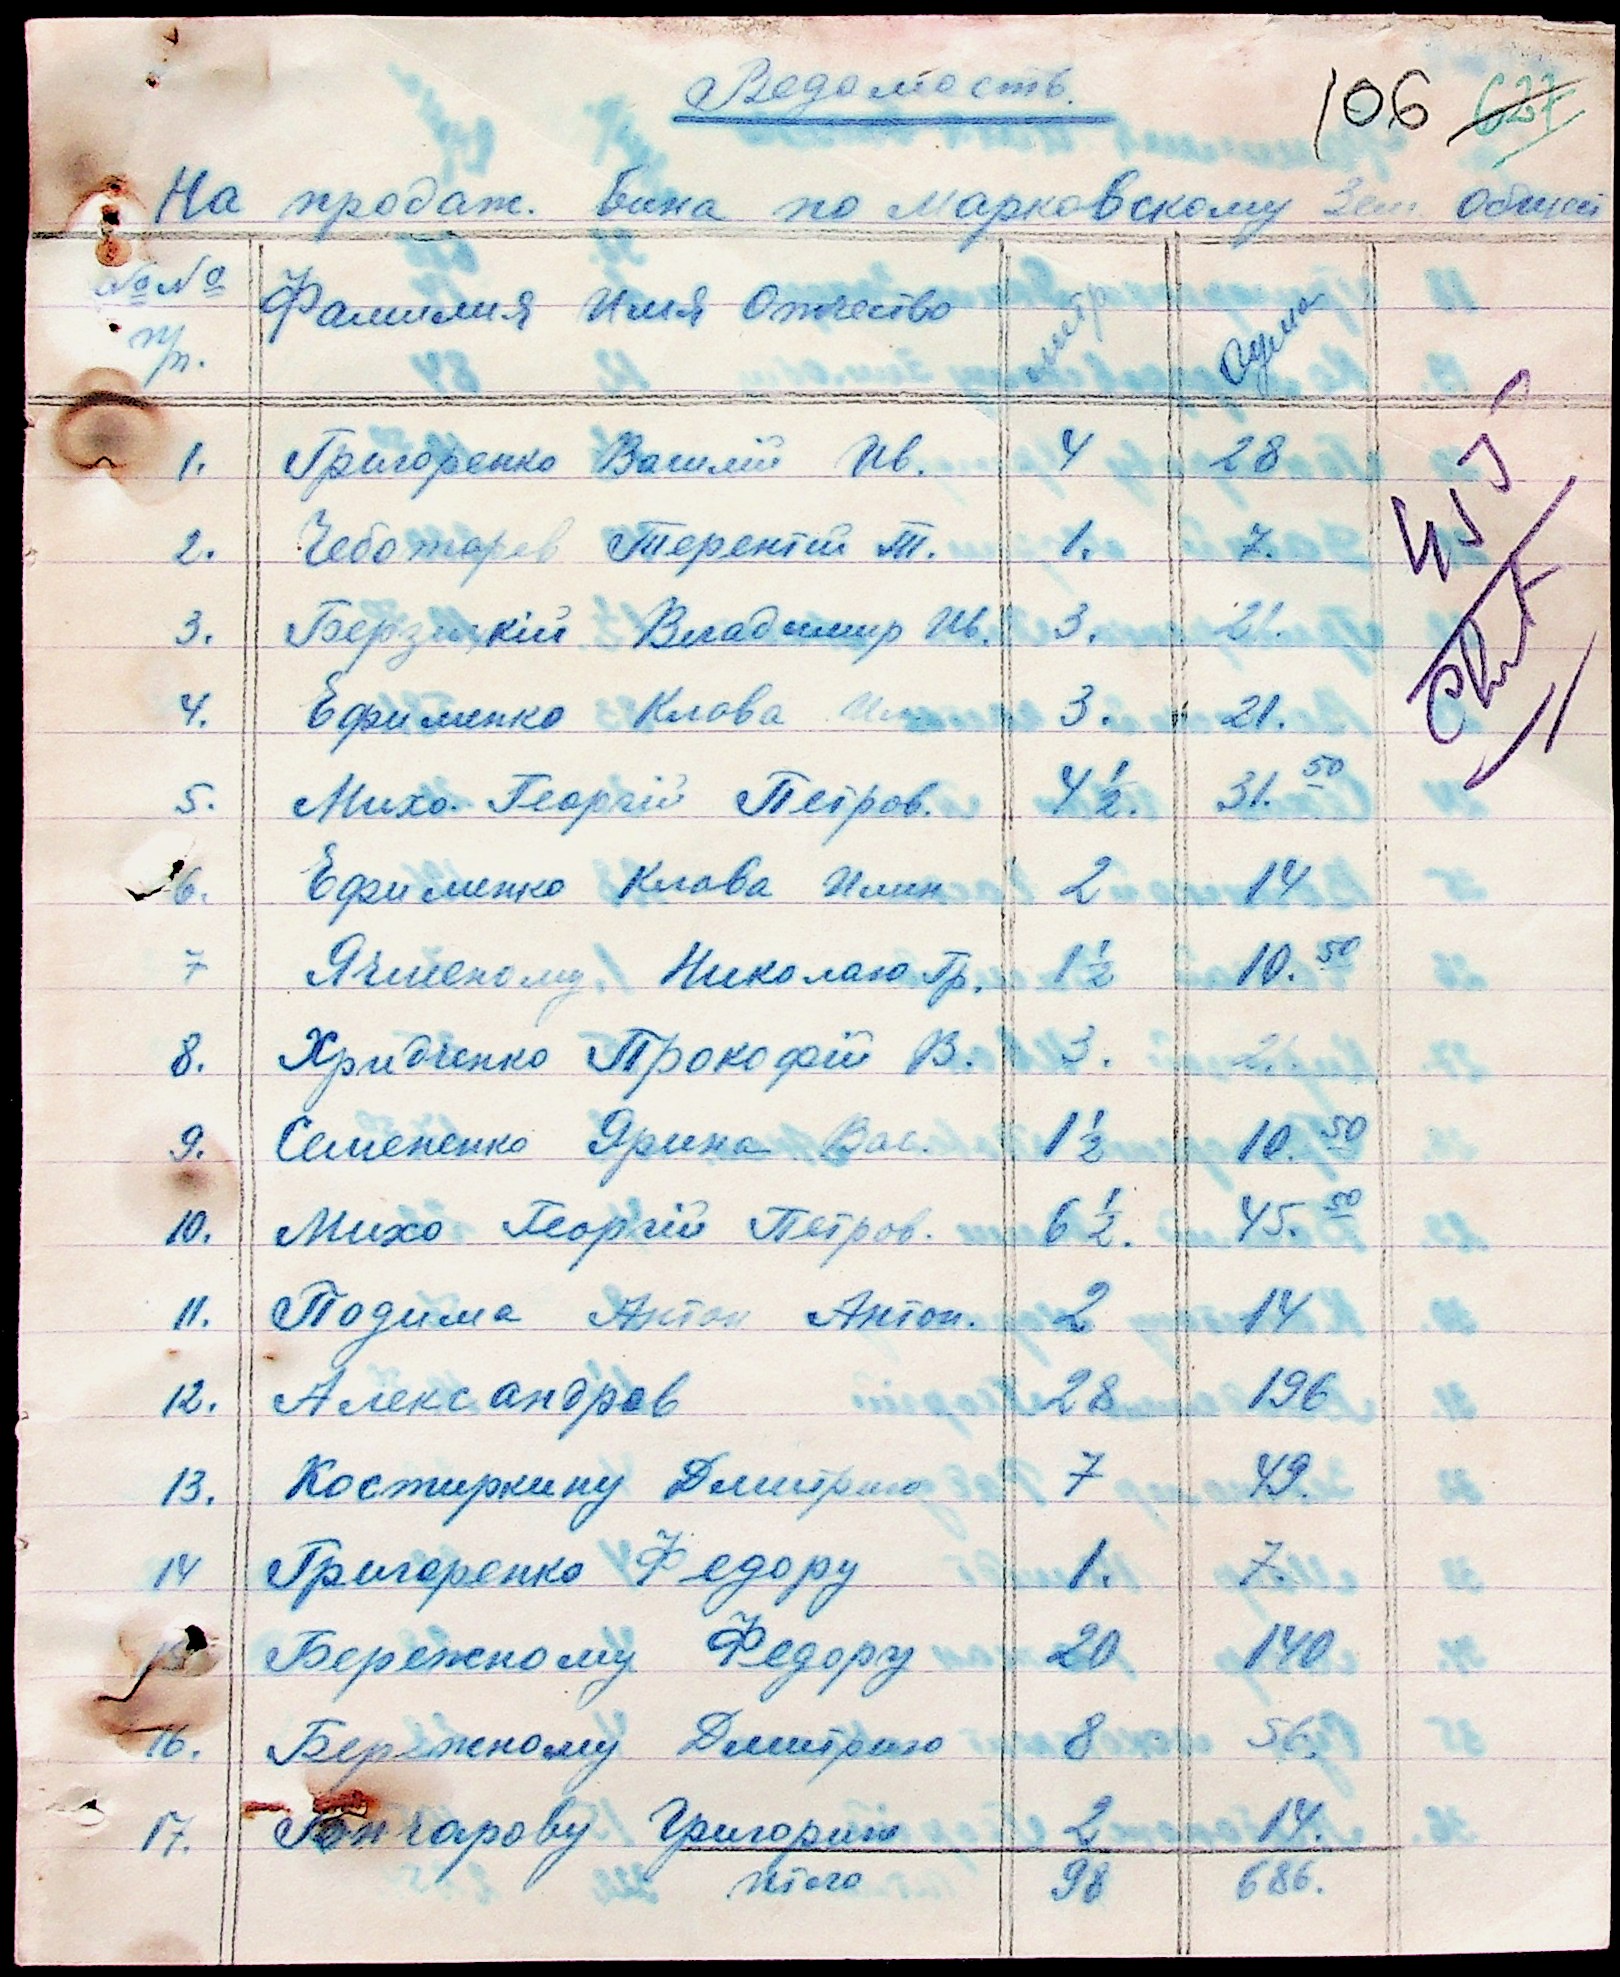 Ведомость.
106 627
На продаж. Вина по Марковскому Зем. Общест
№№ п/п. Фамилия Имя Отчество литр Сума
1. Григоренко Василий Ив. 4 28
2. Чеботарев Терентий Т. 1. 7.
3. Берзицкій Владимир Ив. 3. 21.
4. Ефименко Клова 3. 21.
5. Михо Георгій Петров. 4 1/2. 31.50
6. Ефименко Клова Илин 2 14
7 Ячменому Николаю Гр. 1 1/2 10.50
8. Хридченко Прокофій В. 3. 21.
9. Семененко Ярина Вас. 1 1/2 10.50
10. Михо Георгій Петров. 6 1/2. 45.50
11. Подима Антон Антон. 2 14
12. Александров 28 196
13. Костиркину Дмитрию 7 49.
14 Григоренко Федору 1. 7.
15 Бережному Федору 20 140
16. Бережному Дмитрию 8 56.
17. Гончарову Григорию 2 14.
Итого 98 686.